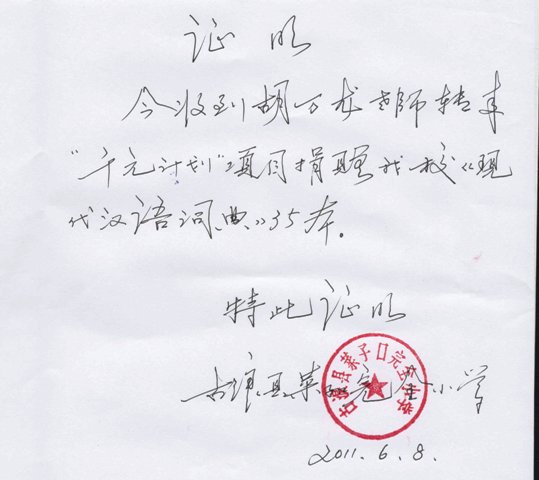 证明
今收到胡万龙老师转来
“千元计划”项目捐赠我校《现
代汉语词典》35本.
特此证明
古浪县菜子口完全小学
2011.6.8.